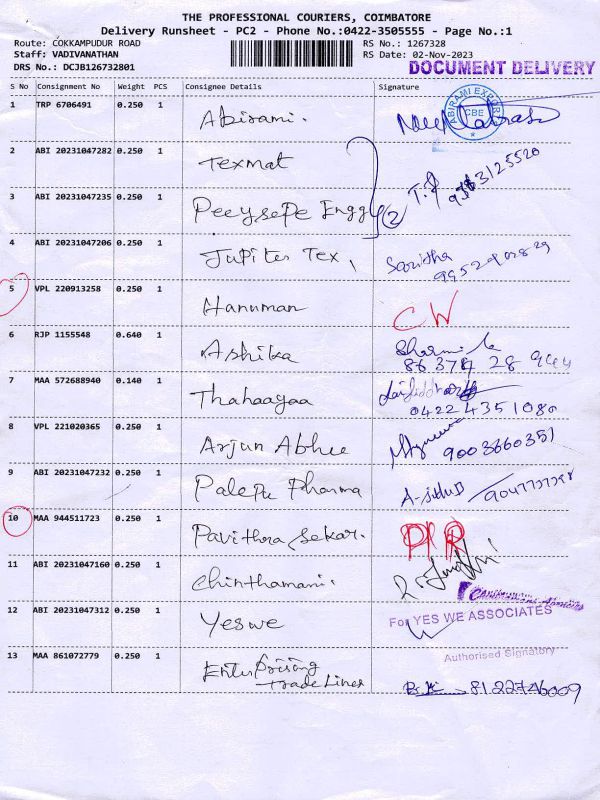 THE PROFESSIONAL COURIERS, COIMBATORE
Delivery Runsheet - PC2 - Phone No.:0422-3505555 - Page No.:1
Route: COKKAMPUDUR ROAD
RS No.: 1267328
Staff: VADIVANATHAN
RS Date: 02-Nov-2023
DRS No.: DCJB126732801
DOCUMENT DELIVERY
S No Consignment No Weight PCS Consignee Details Signature
1 TRP 6706491 0.250 1 Abirami.
ABIRAMI EXPORT CBE
2 ABI 20231047282 0.250 1 Texmat
3 ABI 20231047235 0.250 1 Peeysepe Engg (2) 9363125520
4 ABI 20231047206 0.250 1 Jupiter Tex, Saritha
5 VPL 220913258 0.250 1 Hanuman CW
6 RJP 1155548 0.640 1 Ashika
86374 28 944
7 MAA 572688940 0.140 1 Thahaagaa
0422 4351080
8 VPL 221020365 0.250 1 Arjun Abhee 9003660351
9 ABI 20231047232 0.250 1 Palepu Pharma
10 MAA 944511723 0.250 1 Pavithra Sekar.
11 ABI 20231047160 0.250 1 Chinthamani.
12 ABI 20231047312 0.250 1 Yeswe For YES WE ASSOCIATES
Authorised Signatory
13 MAA 861072779 0.250 1 Enterprising
Trade Lines 8122746009